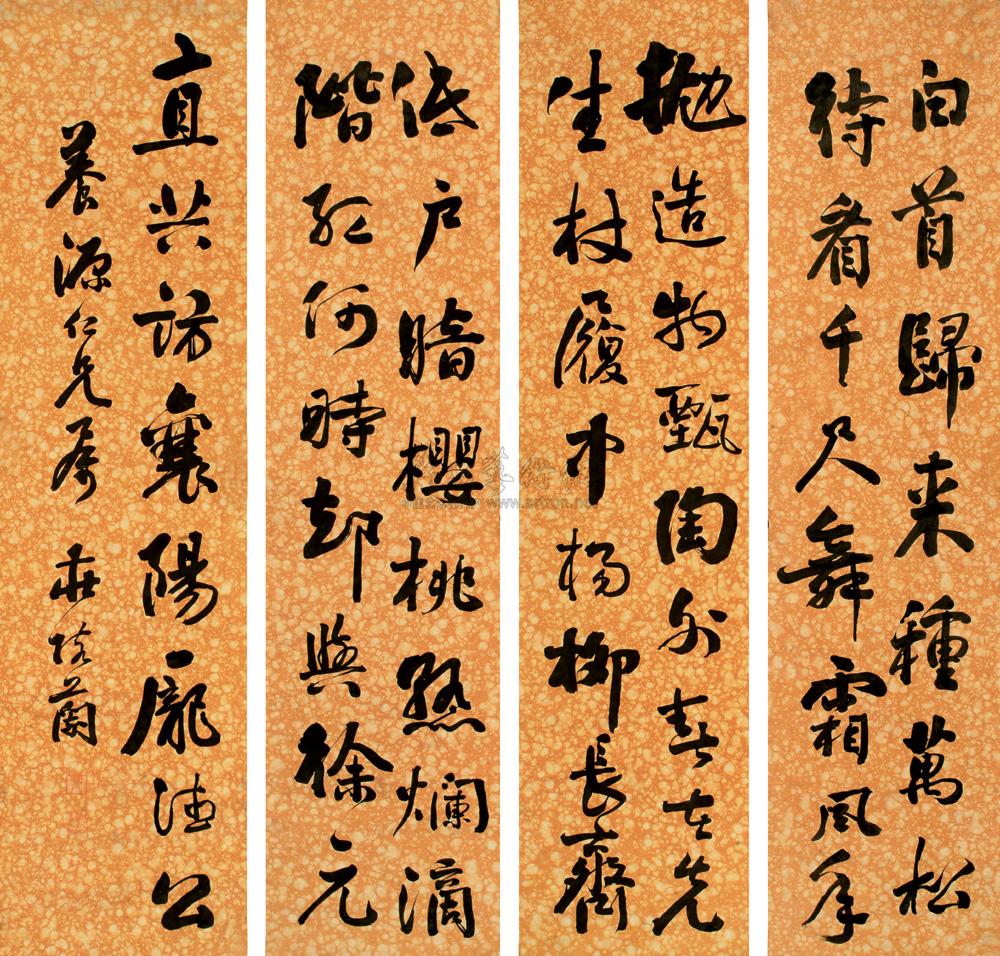 白首歸来種萬松
待看千尺舞霜風年
抛造物甄陶外春在先
生杖履中楊柳長齊
低户暗櫻桃熟爛滴
階紅何時却與徐元
直共訪襄陽龐德公
養源仁兄屬 莊陔蘭
www.artron.net